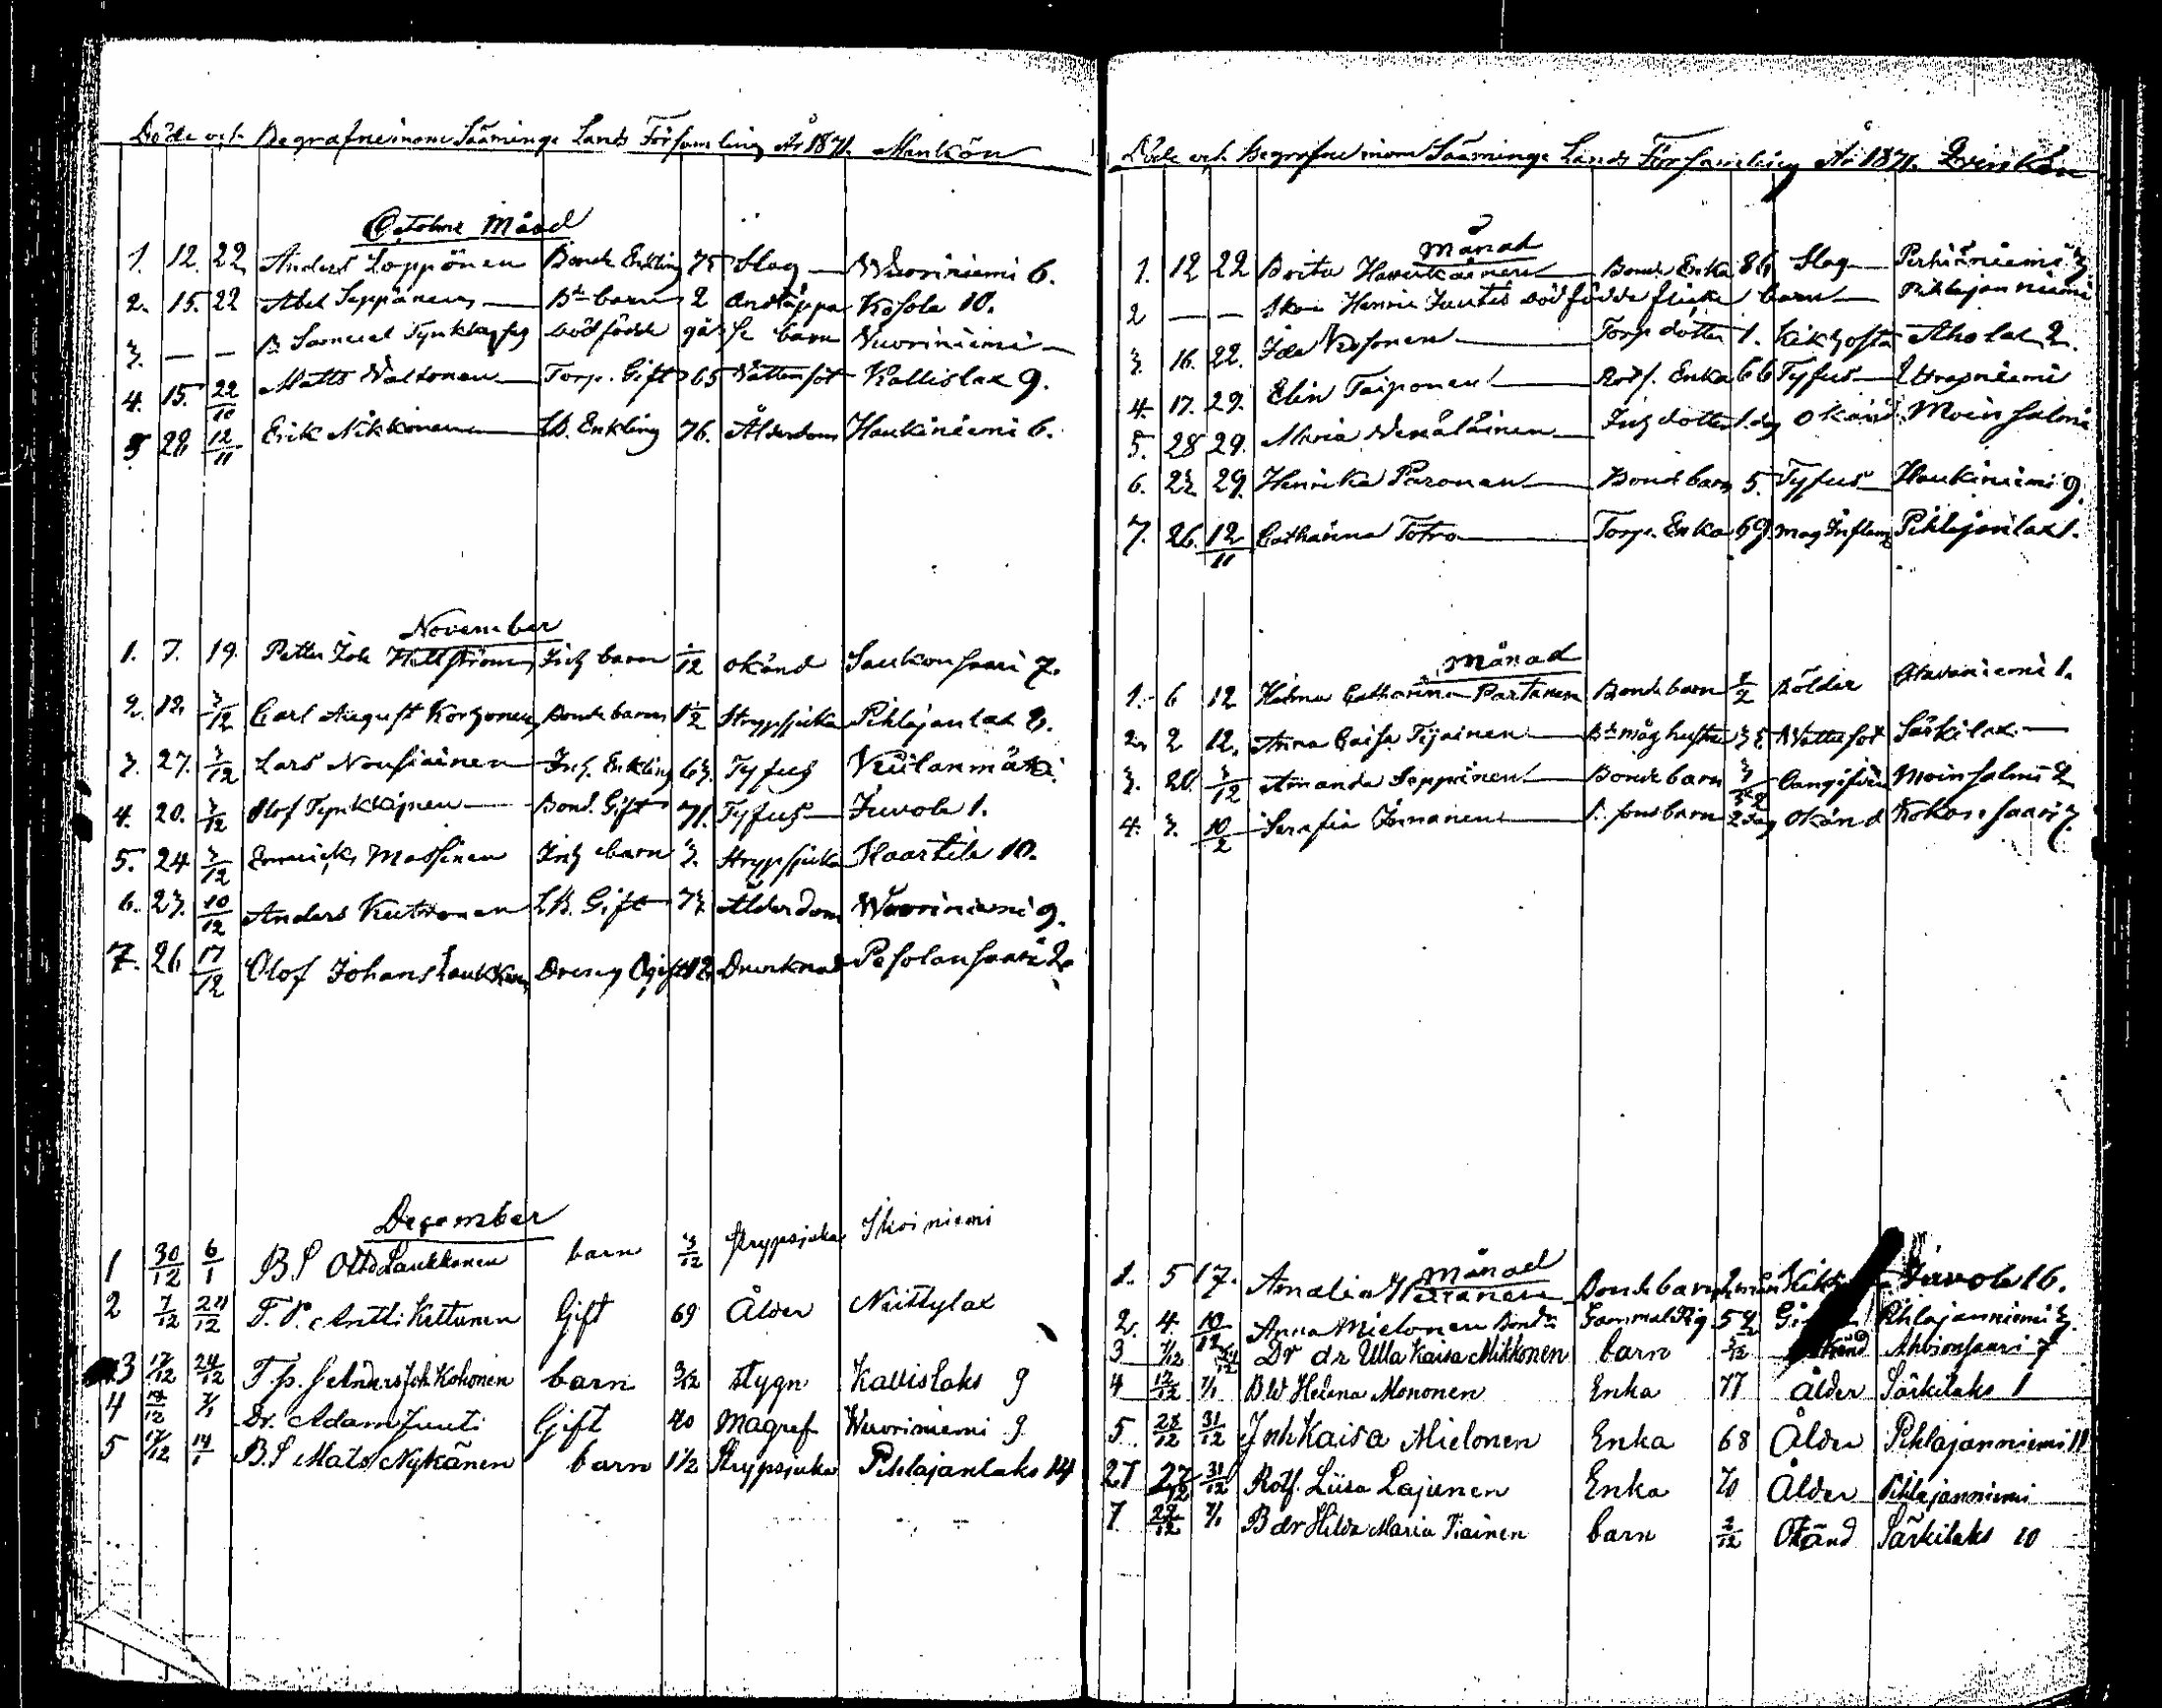 Döde och Begrafne inom Sääminge Lands Församling År 1871. Mankön
October Månad
1. 12. 22 Anders Loppönen Bonde Enkling 75 Slag Wuoriniemi 6.
2. 15. 22 Abel Seppänen Bde barn 2 Andtäppa Kosola 10.
3. — — B. Samuel Tynkkynens dödfödde barn Vuoriniemi —
4. 15. 22/10 Matts Waltonen Torp. Gift 65 Vattensot Kallislax 9.
5 28 12/11 Erik Nikkonen Enkling 76. Ålderdom Haukiniemi 6.
November
1. 7. 19. Petter Joh Hellström Inh barn 1/12 okänd Saukonsaari 7.
2. 12. 3/12 Carl August Korhonen Bonde barn 1 1/2 Strypsjuka Pihlajanlax 8.
3. 27. 3/12 Lars Nousiainen Inh. Enkling 63. Tyfus
4. 20. 3/12 Olof Tynkkynen Bond. Gift 71. Tyfus Juvola 1.
5. 24 3/12 Massinen Inh barn 3. Strypsjuka Haartila 10.
6. 23. 10/12 Anders Kuttonen Gift 73. Ålderdom Wuoriniemi 9.
7. 26 17/12 Olof Johans Laukkanen Dreng Ogift 12. Drunknad Pesolansaari 2.
December
1 30/12 6/1 B S Otto Laukkonen barn 3/12 Strypsjuka
2 7/12 24/12 T. P. Antti Kettunen Gift 69 Ålder Niittylax
3 17/12 24/12 T p. S Anders Joh Kokonen barn 3/12 Stygn Kallislaks 9
4 14/12 7/1 Dr. Adam Juuti Gift 40 Magref Wuoriniemi 9
5 17/12 14/1 B.S Mats Nykänen barn 1 1/2 Strypsjuka Pihlajanlaks 14
Döde och Begrafne inom Sääminge Lands Församling År 1871. Qvinkön
Månad
1. 12 22 Brita Haverkainen Bonde Enka 86 Slag Pihlajaniemi 3
2 — — Henric Juutis dödfödde flicke barn Pihlajanniemi
3. 16. 22. Ida Torp dotter 1. Kikhosta Aholax 2.
4. 17. 29. Elin Taiponen Rotf. Enka 66 Tyfus
5. 28 29. Maria Wenäläinen Inh dotter 1. dag Okänd. Moinsalmi
6. 23 29. Henrika Paronen Bonde barn 5. Tyfus Haukiniemi 9.
7. 26. 12/11 Catharina Totro Torp. Enka 69 Mag Inflam Pihlajanlax 1.
Månad
1. 6 12 Hilma Catharina Partanen Bonde barn 1/2 Bölder 1.
2. 2 12. Anna Caisa Tijainen Bde måg hustru 35 Wattusot Särkilax —
3. 20 3/12 Amanda Seppinen Bonde barn Moinsalmi 2
4. 3. 10/2 Serafia sons barn 2 dag Okänd Kokonsaari 7.
Månad
1. 5 17. Amalia Bonde barn Juvola 16.
2. 4. 10/12 Anna Mielonen Bonde Gammal Pig 52 Pihlajanniemi 3.
3 7/12 24/12 Dr dr Ulla Kaisa Mikkonen barn 3/12 Okänd Ahvionsaari 7
4 12/12 7/1 B W Helena Mononen Enka 77 Ålder Särkilaks 1
5 28/12 31/12 Inh Kaisa Mielonen Enka 68 Ålder Pihlajanniemi 11
27 27/12 31/12 Rotf. Liisa Lajunen Enka 70 Ålder Pihlajanniemi
7 29/12 7/1 B dr Hilda Maria Tiainen barn 2/12 Okänd Särkilaks 10